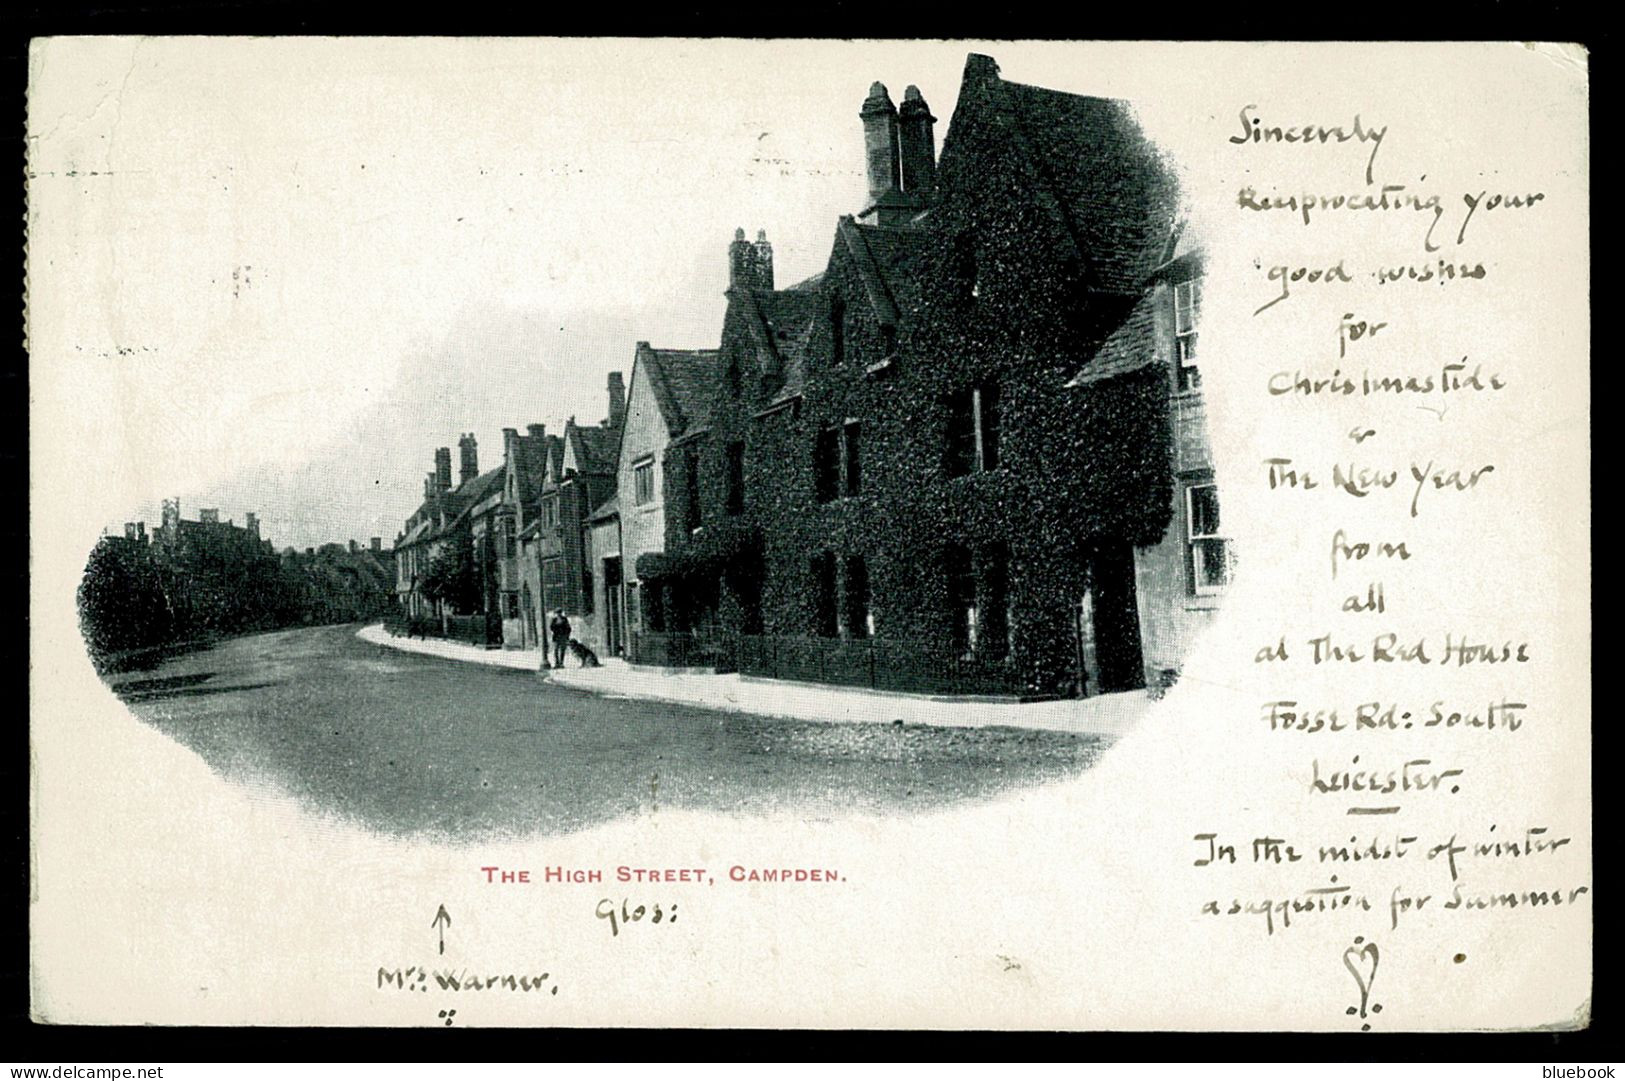 Sincerely
Reciprocating your
good wishes
for
Christmastide
&
The New Year
from
all
at The Red House
Fosse Rd: South
Leicester.
In the midst of winter
a suggestion for Summer
THE HIGH STREET, CAMPDEN.
Glos:
Mrs. Warner.
bluebook